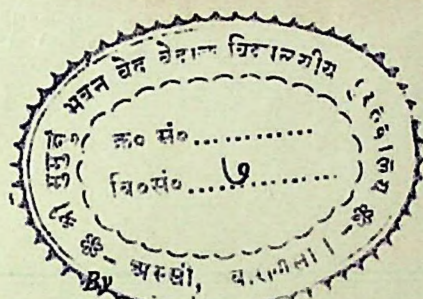 ❀ मुमुक्षु भवन वेद वेदाङ्ग विद्यालयीय पुस्तकालय ❀
क्र० सं०..............
वि०सं०....७..........
अस्सी, वाराणसी।
By